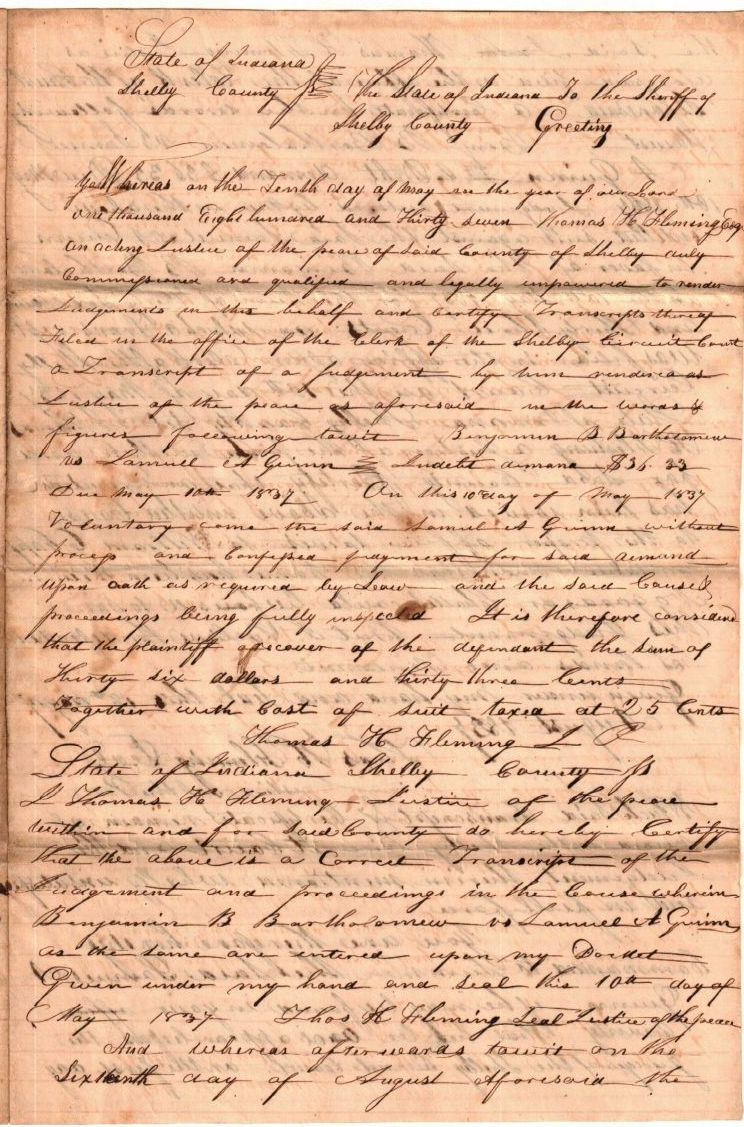 State of Indiana
Shelby County Ss The State of Indiana To the Sheriff of
Shelby County Greeting
Whereas on the Tenth day of May in the year of our Lord
one thousand Eight hundred and Thirty seven Thomas H Fleming Esq
an acting Justice of the peace of said County of Shelby duly
Commissioned and qualified and legally impowered to render
Judgements in this behalf and Certify Transcripts thereof
Filed in the office of the Clerk of the Shelby Circuit Court
a Transcript of a Judgement by him rendered as
Justice of the peace as aforesaid in the words &
figures following towit Benjamin B Bartholomew
vs Samuel A Guinn In debt demand $36.33
Due May 10th 1837 On this 10th day of May 1837
Voluntary come the said Samuel A Guinn without
process and Confessed Judgment for said demand
upon oath as required by Law and the said Cause &
proceedings being fully inspected It is therefore considered
that the plaintiff recover of the defendant the sum of
Thirty six dollars and thirty three Cents
Together with Cost of suit taxed at 25 Cents
Thomas H Fleming J P
State of Indiana Shelby County Ss
I Thomas H Fleming Justice of the peace
within and for said County do hereby Certify
that the above is a Correct Transcript of the
Judgement and proceedings in the Cause wherein
Benjamin B Bartholomew vs Samuel A Guinn
as the same are intered upon my Docket
Given under my hand and seal this 10th day of
May 1837 Thos H Fleming Seal Justice of the peace
And whereas afterwards towit on the
Sixteenth day of August Aforesaid the